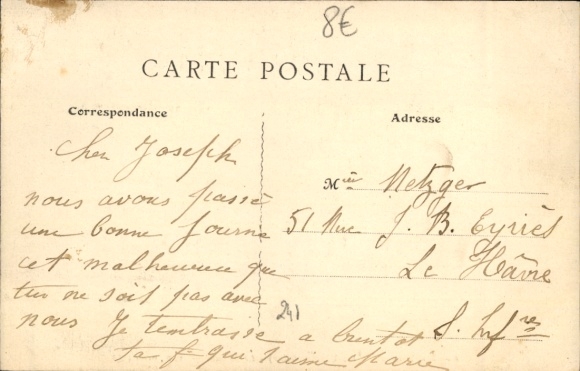 8€
CARTE POSTALE
Correspondance
Adresse
Cher Joseph
nous avons passé
une bonne Journe
cet malheureu que
tu ne soit pas avec
nous Je tembrasse a bientot
ta f qui taime Marie
Mᵉᵘʳ Metzger
51 Rue J. B. Eyriès
Le Hâvre
S. Infʳᵉ
241